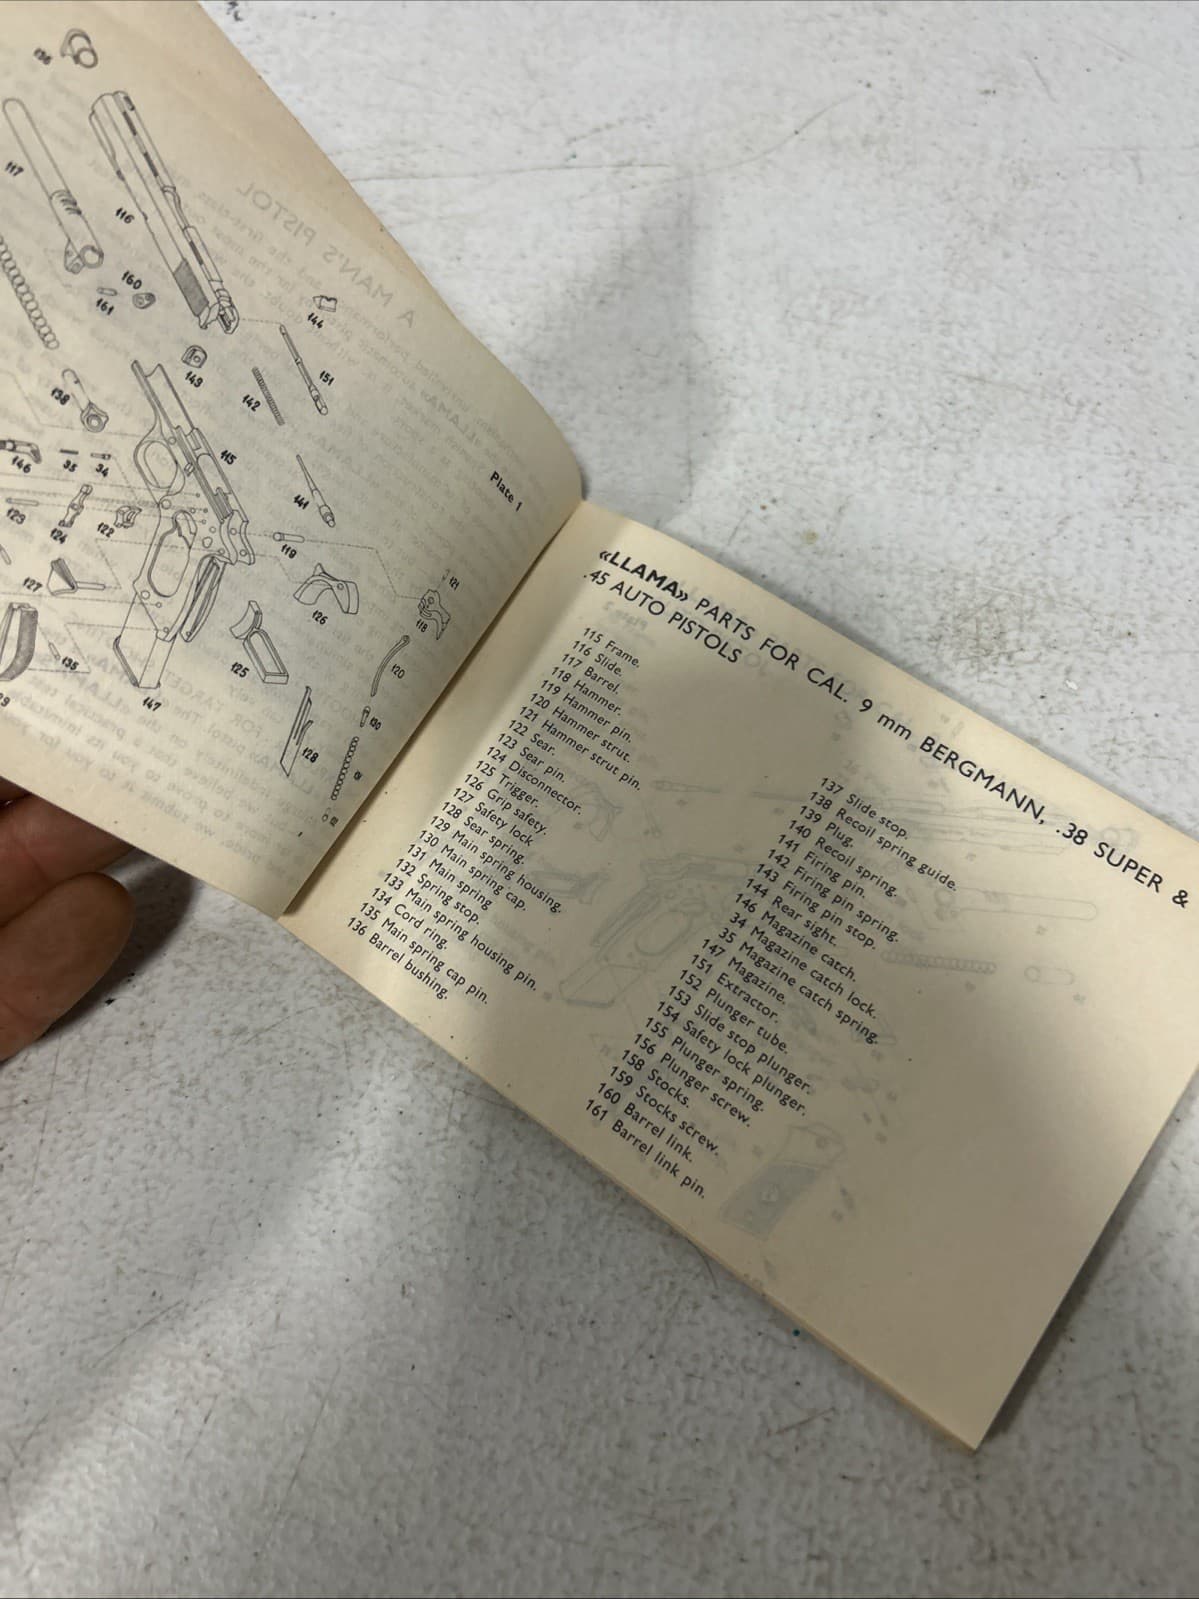 136
117
116
160
161
144
143
151
142
138
115
146
35
34
141
123
124
122
119
121
127
126
118
135
125
120
147
130
128
Plate 1
«LLAMA» PARTS FOR CAL. 9 mm BERGMANN, .38 SUPER &
.45 AUTO PISTOLS
115 Frame.
116 Slide.
117 Barrel.
118 Hammer.
119 Hammer pin.
120 Hammer strut.
121 Hammer strut pin.
122 Sear.
123 Sear pin.
124 Disconnector.
125 Trigger.
126 Grip safety.
127 Safety lock
128 Sear spring.
129 Main spring housing.
130 Main spring cap.
131 Main spring
132 Spring stop.
133 Main spring housing pin.
134 Cord ring.
135 Main spring cap pin.
136 Barrel bushing.
137 Slide stop.
138 Recoil spring guide.
139 Plug.
140 Recoil spring.
141 Firing pin.
142 Firing pin spring.
143 Firing pin stop.
144 Rear sight.
146 Magazine catch.
34 Magazine catch lock.
35 Magazine catch spring.
147 Magazine.
151 Extractor.
152 Plunger tube.
153 Slide stop plunger.
154 Safety lock plunger.
155 Plunger spring.
156 Plunger screw.
158 Stocks.
159 Stocks screw.
160 Barrel link.
161 Barrel link pin.